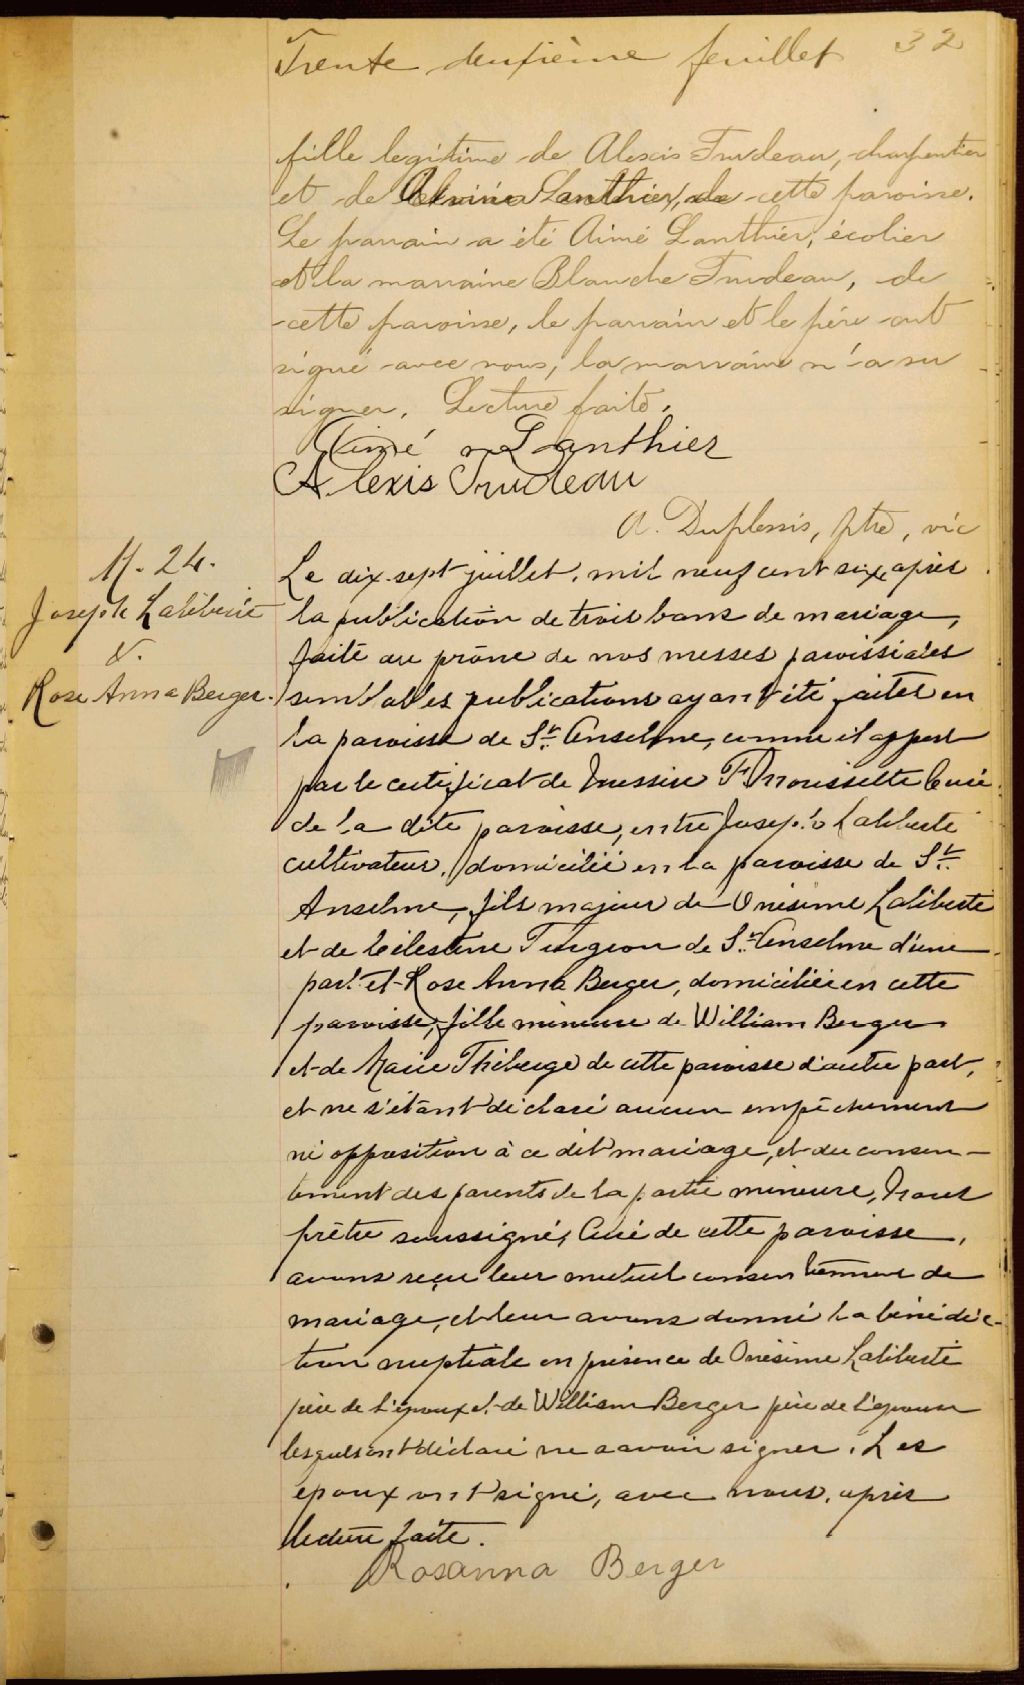 Trente deuxième feuillet 32
fille legitime de Alexis Trudeau, charpentier
et de Alvina Lanthier, de cette paroisse.
Le parrain a été Aimé Lanthier, écolier
et la marraine Blanche Trudeau, de
cette paroisse, le parrain et le père ont
signé avec nous, la marraine n'a su
signer. Lecture faite.
Aimé Lanthier
Alexis Trudeau
A. Duplessis, ptre, vic
M. 24.
Joseph Laliberté
&.
Rose Anna Berger.
Le dix-sept juillet, mil neuf cent six, après
la publication de trois bans de mariage,
faite au prône de nos messes paroissiales
semblables publications ayant été faites en
la paroisse de St. Anselme, comme il appert
par le certificat de Messire Curé
de la dite paroisse, entre Joseph Laliberté
cultivateur, domicilié en la paroisse de St.
Anselme, fils majeur de Onésime Laliberté
et de Célestine Turgeon de St. Anselme d'une
part et Rose Anna Berger, domiciliée en cette
paroisse, fille mineure de William Berger
et de Marie Thiberge de cette paroisse d'autre part,
et ne s'étant déclaré aucun empêchement
ni opposition à ce dit mariage, et du consen-
tement des parents de la partie mineure, Nous
prêtre soussigné, Curé de cette paroisse,
avons reçu leur mutuel consentement de
mariage, et leur avons donné la bénédic-
tion nuptiale en présence de Onésime Laliberté
père de l'époux et de William Berger père de l'épouse
lesquels ont déclaré ne savoir signer. Les
époux ont signé, avec nous, après
lecture faite.
Rosanna Berger